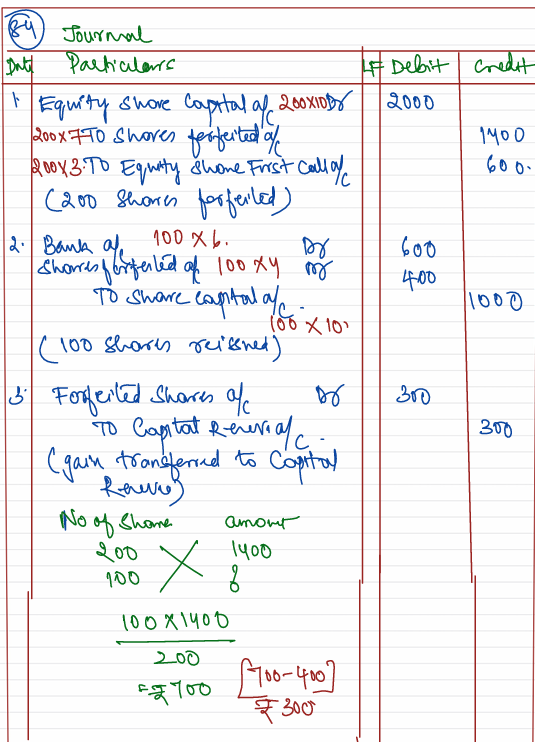 84 Journal
Date Particulars LF Debit Credit
1 Equity share Capital a/c 200x10 Dr 2000
200x7 To Shares forfeited a/c 1400
200x3. To Equity Share First Call a/c 600.
(200 Shares forfeited)
2. Bank a/c 100 x 6. Dr 600
Shares forfeited a/c 100 x 4 Dr 400
To Share capital a/c. 1000
100 x 10.
(100 shares reissued)
3. Forfeited Shares a/c Dr 300
To Capital Reserve a/c. 300
(gain transferred to Capital
Reserve)
No of Share amount
200 1400
100 ?
100 x 1400
200
= ₹ 700 [700-400]
₹ 300